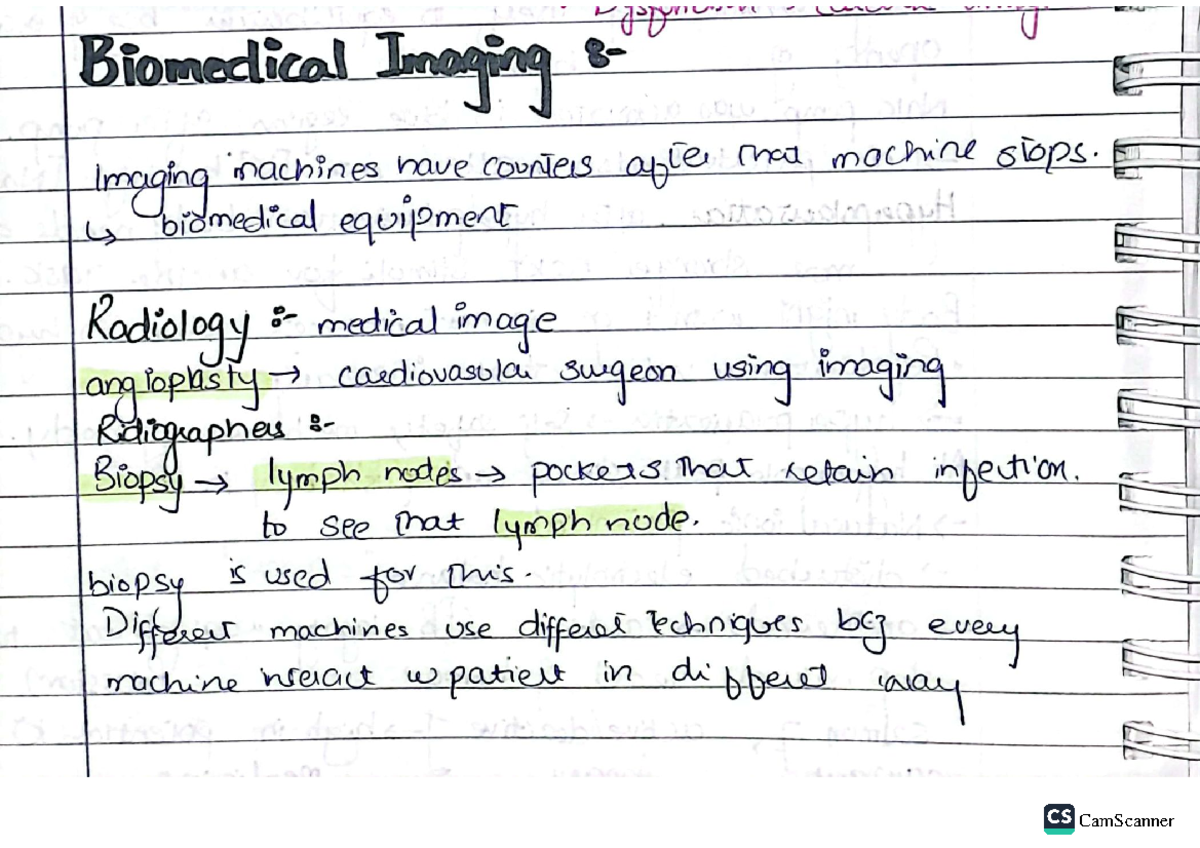 Biomedical Imaging :-
Imaging machines have counters after that machine stops.
↳ biomedical equipment
Radiology :- medical image
angioplasty → cardiovasular surgeon using imaging
Ridiographers :-
Biopsy → lymph nodes → pockets that retain infection.
to see that lymph node.
biopsy is used for this.
Different machines use different techniques bcz every
machine interact w patient in different way
CS CamScanner